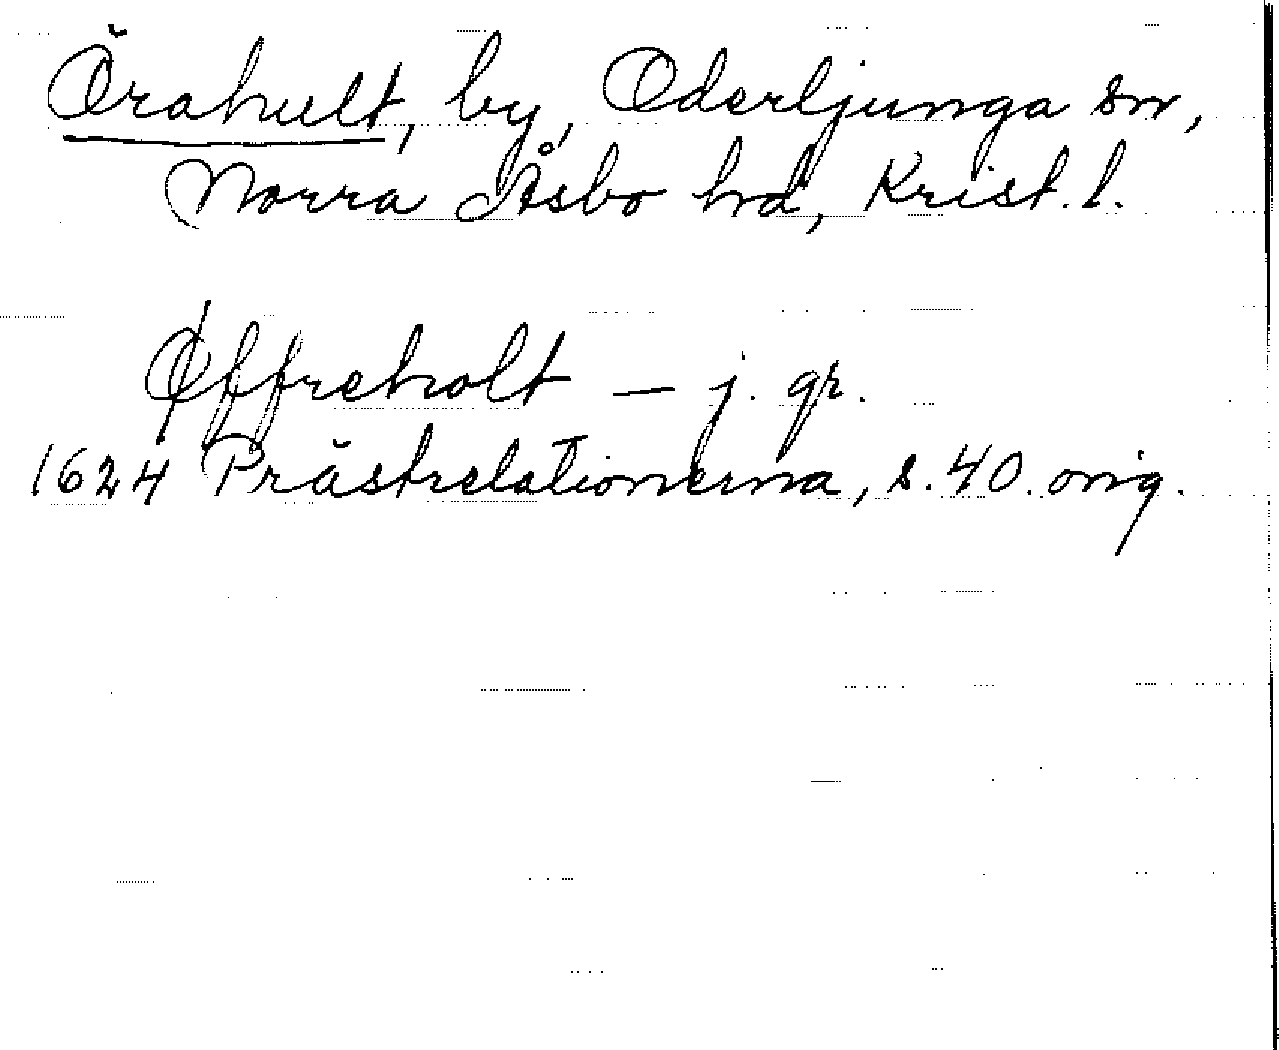 Örahult, by, Oderljunga sn,
Norra Åsbo hd, Krist. l.
Øffreholt — j. gr.
1624 Prästrelationerna, s. 40. orig.